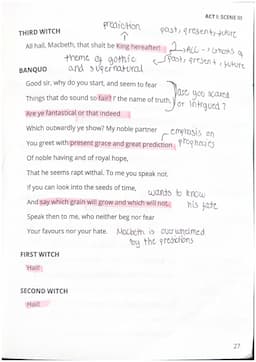 ACT I: SCENE III
prediction
THIRD WITCH
past, present, future
All hail, Macbeth, that shalt be king hereafter!
ALL - 3 witches of
past, present, future
theme of gothic
and supernatural
BANQUO
Good sir, why do you start, and seem to fear
Things that do sound so fair? I' the name of truth,
are you scared
or intrigued?
Are ye fantastical or that indeed
Which outwardly ye show? My noble partner
emphasis on
prophecies
You greet with present grace and great prediction
Of noble having and of royal hope,
That he seems rapt withal. To me you speak not.
If you can look into the seeds of time,
wants to know
his fate
And say which grain will grow and which will not,
Speak then to me, who neither beg nor fear
Your favours nor your hate.
Macbeth is overwhelmed
by the predictions
FIRST WITCH
'Hail!
SECOND WITCH
Hail!
27